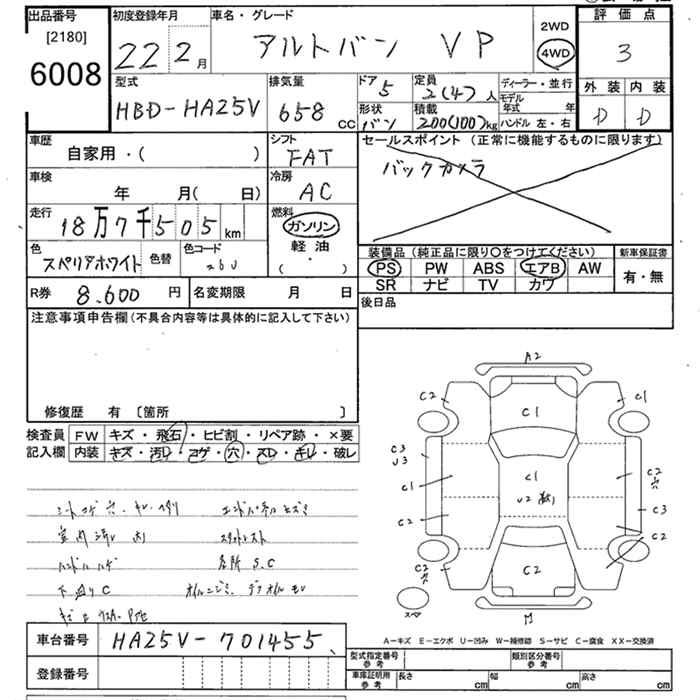 出品番号
[2180]
6008
初度登録年月
22 2月
車名・グレード
アルトバン VP
2WD
4WD
評価点
3
型式
HBD-HA25V
排気量
658 CC
ドア
5
定員
2(4)人
形状
バン
積載
200(100)kg
ディーラー・並行
モデル年式 年
ハンドル 左・右
外装 内装
D D
車歴
自家用・( )
シフト
FAT
車検
年 月( 日)
冷房
AC
走行
18万7千505km
燃料
ガソリン
軽油
( ・ )
色
スペリアホワイト
色替
色コード
26U
セールスポイント(正常に機能するものに限ります)
バックカメラ
装備品(純正品に限り○をつけてください)
PS PW ABS エアB AW
SR ナビ TV カワ
新車保証書
有・無
R券 8.600円
名変期限 月 日
後日品
注意事項申告欄(不具合内容等は具体的に記入して下さい)
修復歴 有 [箇所 ]
検査員記入欄
FW キズ・飛石・ヒビ割・リペア跡・×要
内装 キズ・汚レ・コゲ・穴・スレ・キレ・破レ
シートコゲ 穴
ハンドルハゲ
下廻りC
各所 S.C
A2
C2
C1
C1
C3
U3
C1
C1
U2
C2
穴
C2
C3
C2
C2
穴
C2
スペア
A-キズ E-エクボ U-凹み W-補修跡 S-サビ C-腐食 XX-交換済
車台番号
HA25V-701455
登録番号
型式指定番号 参考
類別区分番号 参考
車庫証明用 参考
長さ cm
幅 cm
高さ cm